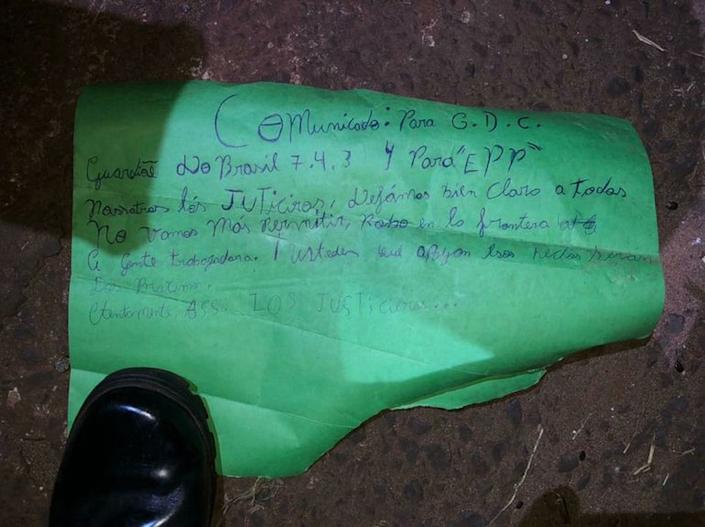 Comunicado: Para G.D.C.
Guardiãe do Brasil 7.4.3 y Para "EPP"
Nosotros los JUTiciros, Dejámos bien claro a todos
No vamos más permitir, Robo en la frontera
a Gente trabajadora. y ustedes que apoyan esos
Los
Atentamente, Ass. LOS JUSTiciros...